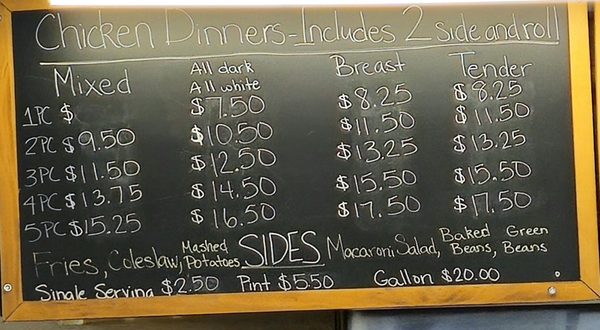 Chicken Dinners-Includes 2 side and roll
Mixed All dark All white Breast Tender
1PC $ $7.50 $8.25 $8.25
2PC $9.50 $10.50 $11.50 $11.50
3PC $11.50 $12.50 $13.25 $13.25
4PC $13.75 $14.50 $15.50 $15.50
5PC $15.25 $16.50 $17.50 $17.50
Fries, Coleslaw, Mashed Potatoes, SIDES Macaroni Salad, Baked Beans, Green Beans
Single Serving $2.50 Pint $5.50 Gallon $20.00